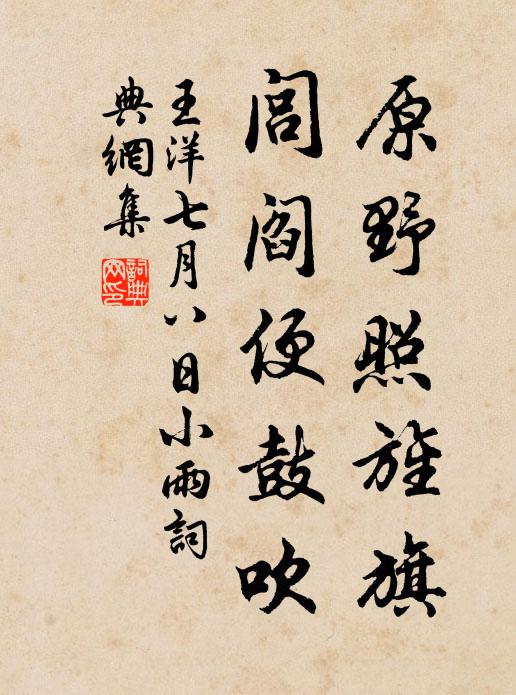 原野照旌旗
閭閻便鼓吹
王洋七月八日小雨詞
典網集
詞典
网印